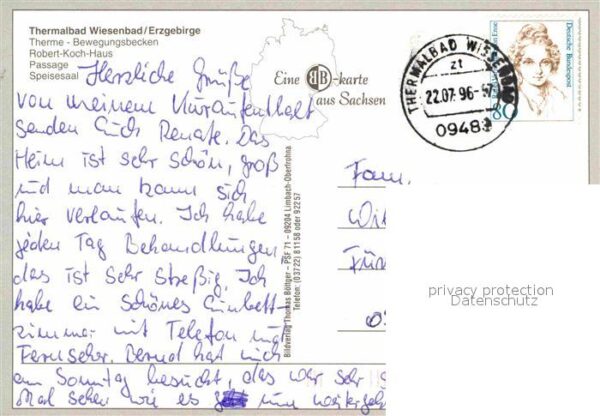 Thermalbad Wiesenbad/Erzgebirge
Therme - Bewegungsbecken
Robert-Koch-Haus
Passage
Speisesaal
Eine BB-karte
aus Sachsen
THERMALBAD WIESENBAD
zt
22.07.96-17
09488
Deutsche Bundespost
80
Herzliche Grüße
von meinem Kuraufenthalt
senden Euch Renate. Das
Heim ist sehr schön, groß
und man kann sich
hier verlaufen. Ich habe
jeden Tag Behandlungen,
das ist sehr streßig. Ich
habe ein schönes Einbett-
zimmer mit Telefon und
Fernseher. Bernd hat mich
am Sonntag besucht, das war sehr
Mal sehen wie es nun weitergeh
Bildverlag Thomas Böttger – PSF 71 – 09204 Limbach-Oberfrohna
Telefon: (03722) 81158 oder 92257
Fam.
privacy protection
Datenschutz